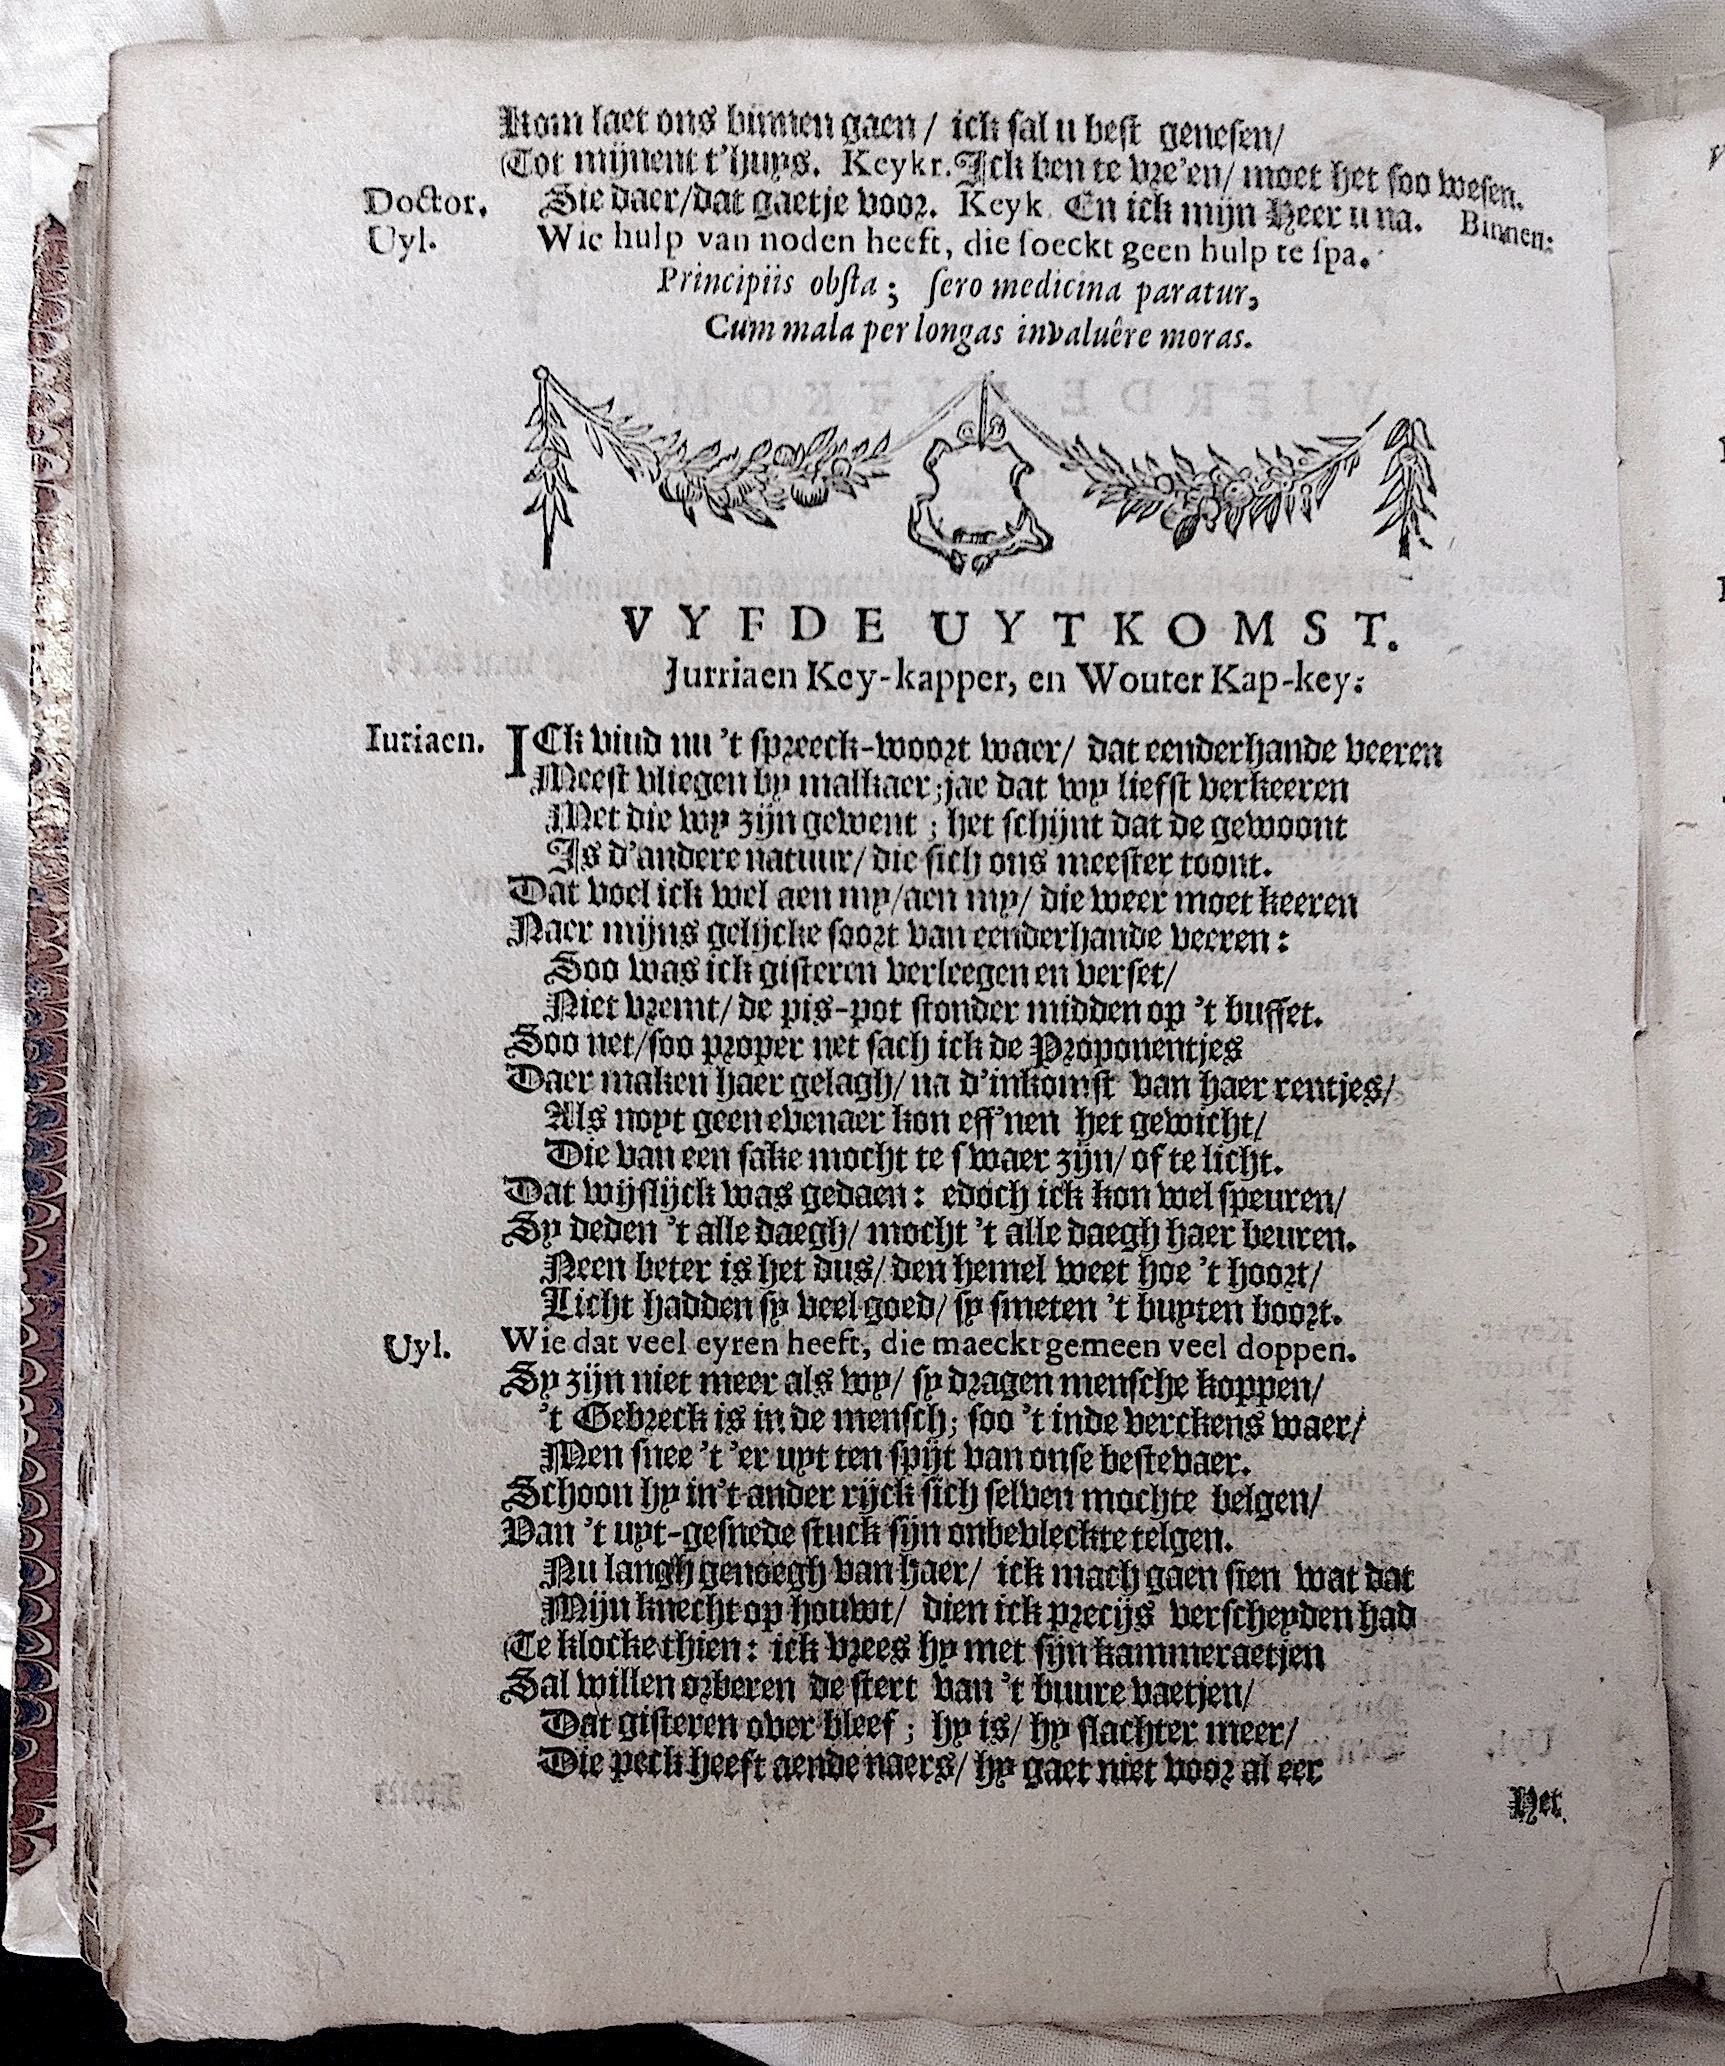 Kom laet ons binnen gaen / ick sal u best genesen /
Tot mijnent t'huys. Keykr. Ick ben te vre'en / moet het soo wesen.
Doctor. Sie daer / dat gaetje voor. Keyk. En ick mijn Heer u na. Binnen:
Uyl. Wie hulp van noden heeft, die soeckt geen hulp te spa.
Principiis obsta; sero medicina paratur,
Cum mala per longas invaluêre moras.
VYFDE UYTKOMST.
Jurriaen Key-kapper, en Wouter Kap-key:
Iuriaen. ICk vind nu 't spreeck-woort waer / dat eenderhande veeren
Meest vliegen by malkaer; jae dat wy liefst verkeeren
Met die wy zijn gewent; het schijnt dat de gewoont
Is d'andere natuur / die sich ons meester toont.
Dat voel ick wel aen my / aen my / die weer moet keeren
Naer mijns gelijcke soort van eenderhande veeren:
Soo was ick gisteren verleegen en verset /
Niet vremt / de pis-pot stonder midden op 't buffet.
Soo net / soo proper net sach ick de Proponentjes
Daer maken haer gelagh / na d'inkomst van haer rentjes /
Als noyt geen evenaer kon eff'nen het gewicht /
Die van een sake mocht te swaer zijn / of te licht.
Dat wijslijck was gedaen: edoch ick kon wel speuren /
Sy deden 't alle daegh / mocht 't alle daegh haer beuren.
Neen beter is het dus / den hemel weet hoe 't hoort /
Licht hadden sy veel goed / sy smeten 't buyten boort.
Uyl. Wie dat veel eyren heeft, die maeckt gemeen veel doppen.
Sy zijn niet meer als wy / sy dragen mensche koppen /
't Gebreck is in de mensch; soo 't inde verckens waer /
Men snee 't 'er uyt ten spijt van onse bestevaer.
Schoon hy in't ander rijck sich selven mochte belgen /
Van 't uyt-gesnede stuck sijn onbevleckte telgen.
Nu langh genoegh van haer / ick mach gaen sien wat dat
Mijn knecht op houwt / dien ick precijs verscheyden had
Te klocke thien: ick vrees hy met sijn kammeraetjen
Sal willen orberen de stert van 't buure vaetjen /
Dat gisteren over bleef; hy is / hy slachter meer /
Die peck heeft aende naers / hy gaet niet voor al eer
Het